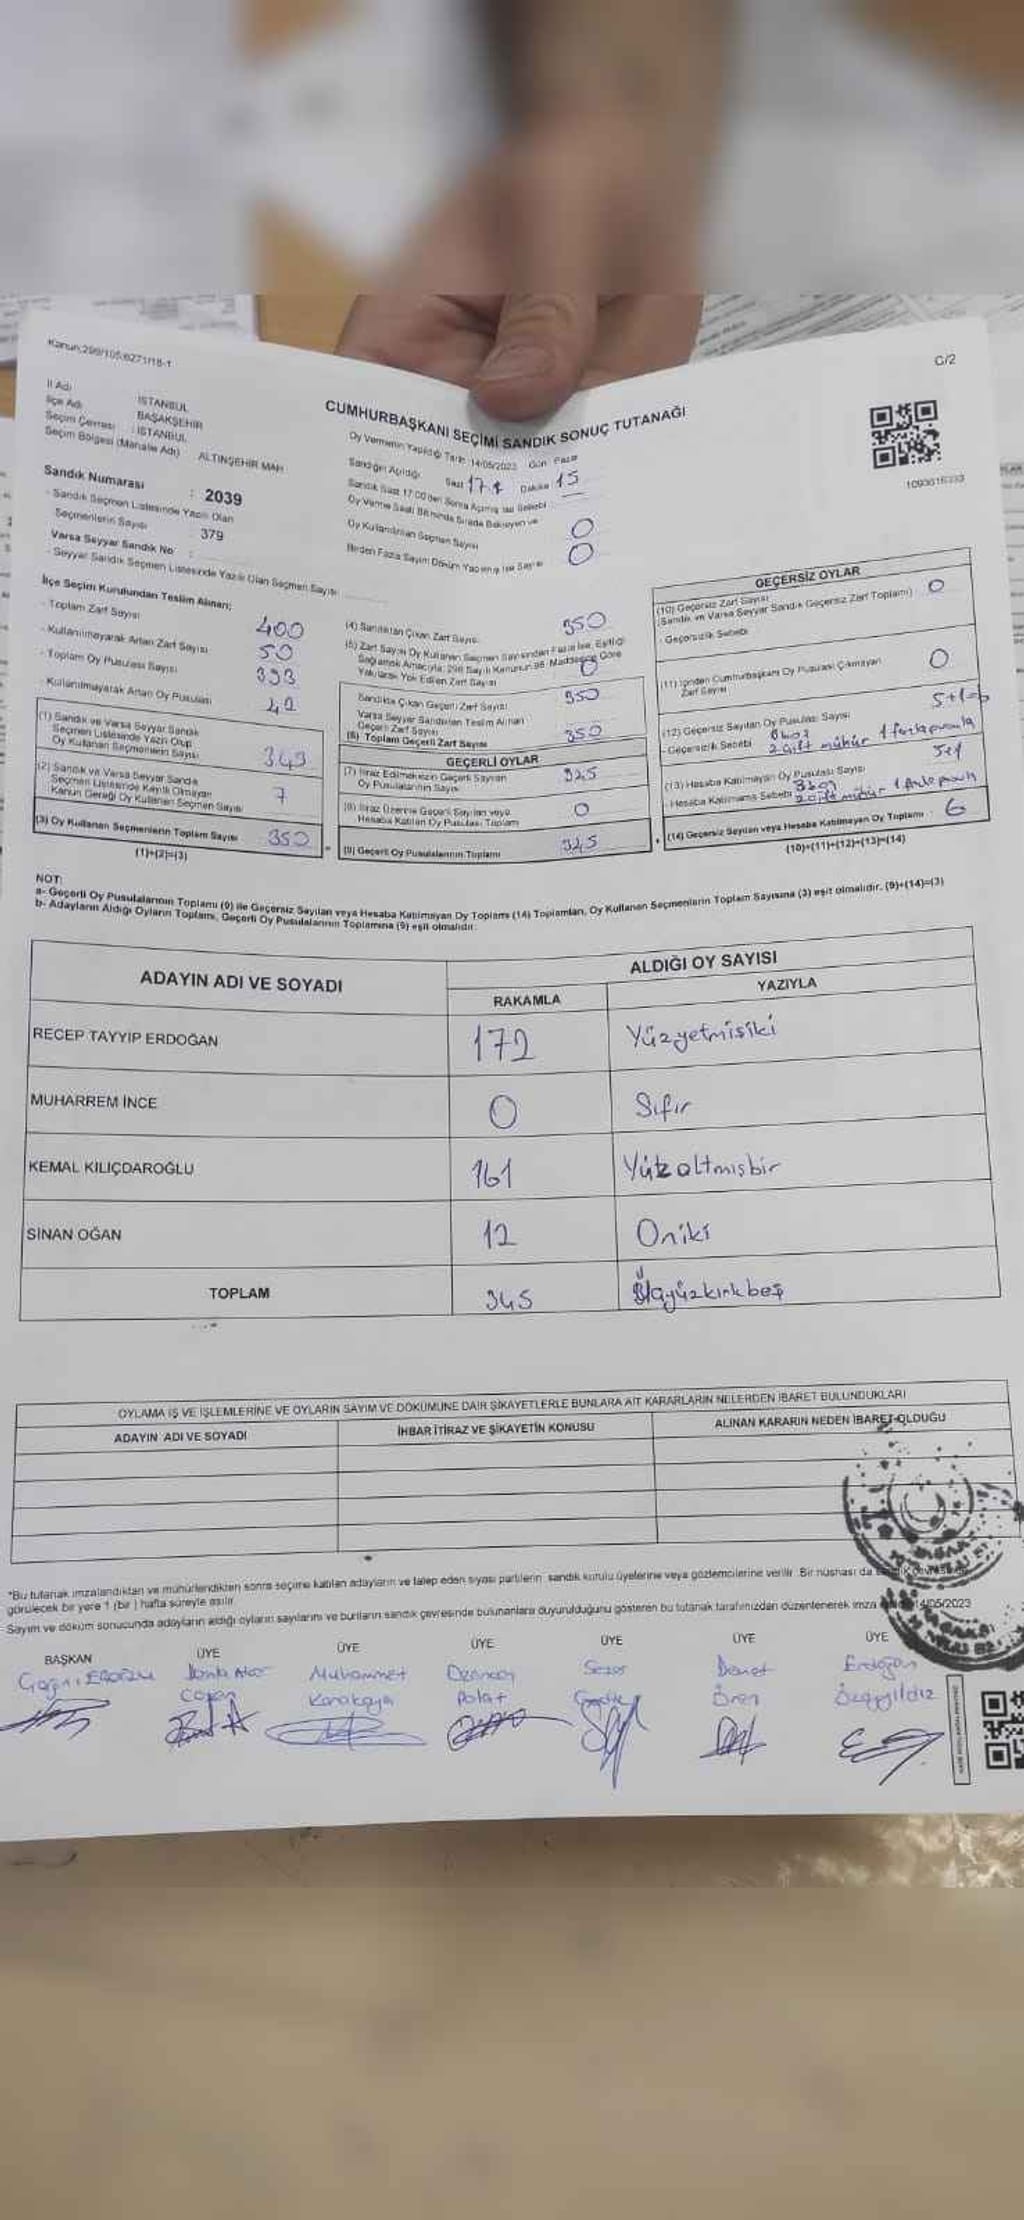 Kanun:298/105,6271/18-1
C/2
İl Adı : İSTANBUL
İlçe Adı : BAŞAKŞEHİR
Seçim Çevresi : İSTANBUL
Seçim Bölgesi (Mahalle Adı) ALTINŞEHİR MAH
Sandık Numarası : 2039
- Sandık Seçmen Listesinde Yazılı Olan
Seçmenlerin Sayısı 379
Varsa Seyyar Sandık No :
- Seyyar Sandık Seçmen Listesinde Yazılı Olan Seçmen Sayısı
CUMHURBAŞKANI SEÇİMİ SANDIK SONUÇ TUTANAĞI
Oy Vermenin Yapıldığı Tarih: 14/05/2023 Gün Pazar
Sandığın Açıldığı Saat 17 Dakika 15
Sandık Saat 17:00'den Sonra Açılmış İse Sebebi
Oy Verme Saati Bitiminde Sırada Bekleyen ve
Oy Kullandırılan Seçmen Sayısı 0
Birden Fazla Sayım Döküm Yapılmış İse Sayısı 0
1093616333
İlçe Seçim Kurulundan Teslim Alınan;
- Toplam Zarf Sayısı 400
- Kullanılmayarak Artan Zarf Sayısı 50
- Toplam Oy Pusulası Sayısı 393
- Kullanılmayarak Artan Oy Pusulası 42
(1) Sandık ve Varsa Seyyar Sandık
Seçmen Listesinde Yazılı Olup
Oy Kullanan Seçmenlerin Sayısı 343
(2) Sandık ve Varsa Seyyar Sandık
Seçmen Listesinde Kayıtlı Olmayan
Kanun Gereği Oy Kullanan Seçmen Sayısı 7
(3) Oy Kullanan Seçmenlerin Toplam Sayısı 350
(1)+(2)=(3)
(4) Sandıktan Çıkan Zarf Sayısı 350
(5) Zarf Sayısı Oy Kullanan Seçmen Sayısından Fazla İse, Eşitliği
Sağlamak Amacıyla, 298 Sayılı Kanunun 98. Maddesine Göre
Yakılarak Yok Edilen Zarf Sayısı 0
Sandıkta Çıkan Geçerli Zarf Sayısı 350
Varsa Seyyar Sandıktan Teslim Alınan
Geçerli Zarf Sayısı
(6) Toplam Geçerli Zarf Sayısı 350
GEÇERLİ OYLAR
(7) İtiraz Edilmeksizin Geçerli Sayılan
Oy Pusulalarının Sayısı 345
(8) İtiraz Üzerine Geçerli Sayılan veya
Hesaba Katılan Oy Pusulası Toplamı 0
(9) Geçerli Oy Pusulalarının Toplamı 345
GEÇERSİZ OYLAR
(10) Geçersiz Zarf Sayısı
(Sandık ve Varsa Seyyar Sandık Geçersiz Zarf Toplamı) 0
- Geçersizlik Sebebi
(11) İçinden Cumhurbaşkanı Oy Pusulası Çıkmayan
Zarf Sayısı 0
(12) Geçersiz Sayılan Oy Pusulası Sayısı 5+1=6
- Geçersizlik Sebebi 3 boş 2 çift mühür 1 fazla pusula
(13) Hesaba Katılmayan Oy Pusulası Sayısı 5+1
- Hesaba Katılmama Sebebi 3 boş 2 çift mühür 1 fazla pusula
(14) Geçersiz Sayılan veya Hesaba Katılmayan Oy Toplamı 6
(10)+(11)+(12)+(13)=(14)
NOT:
a- Geçerli Oy Pusulalarının Toplamı (9) ile Geçersiz Sayılan veya Hesaba Katılmayan Oy Toplamı (14) Toplamları, Oy Kullanan Seçmenlerin Toplam Sayısına (3) eşit olmalıdır. (9)+(14)=(3)
b- Adayların Aldığı Oyların Toplamı, Geçerli Oy Pusulalarının Toplamına (9) eşit olmalıdır.
ADAYIN ADI VE SOYADI ALDIĞI OY SAYISI
RAKAMLA YAZIYLA
RECEP TAYYİP ERDOĞAN 172 Yüzyetmişiki
MUHARREM İNCE 0 Sıfır
KEMAL KILIÇDAROĞLU 161 Yüzaltmışbir
SİNAN OĞAN 12 Oniki
TOPLAM 345 Üçyüzkırkbeş
OYLAMA İŞ VE İŞLEMLERİNE VE OYLARIN SAYIM VE DÖKÜMÜNE DAİR ŞİKAYETLERLE BUNLARA AİT KARARLARIN NELERDEN İBARET BULUNDUKLARI
ADAYIN ADI VE SOYADI İHBAR İTİRAZ VE ŞİKAYETİN KONUSU ALINAN KARARIN NEDEN İBARET OLDUĞU
*Bu tutanak imzalandıktan ve mühürlendikten sonra seçime katılan adayların ve talep eden siyasi partilerin sandık kurulu üyelerine veya gözlemcilerine verilir. Bir nüshası da sandık çevresinde
görülecek bir yere 1 (bir) hafta süreyle asılır.
Sayım ve döküm sonucunda adayların aldığı oyların sayılarını ve bunların sandık çevresinde bulunanlara duyurulduğunu gösteren bu tutanak tarafımızdan düzenlenerek imza 14/05/2023
BAŞKAN ÜYE ÜYE ÜYE ÜYE ÜYE ÜYE
Muhammet Sezer Erdoğan
Karakaya Polat Ören Özçayıldız